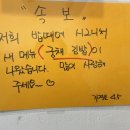 "속보"
저희 밥때에 시그니처
새 메뉴 (궁채 김밥)이
나왔습니다. 많이 사랑해
주세요~♡